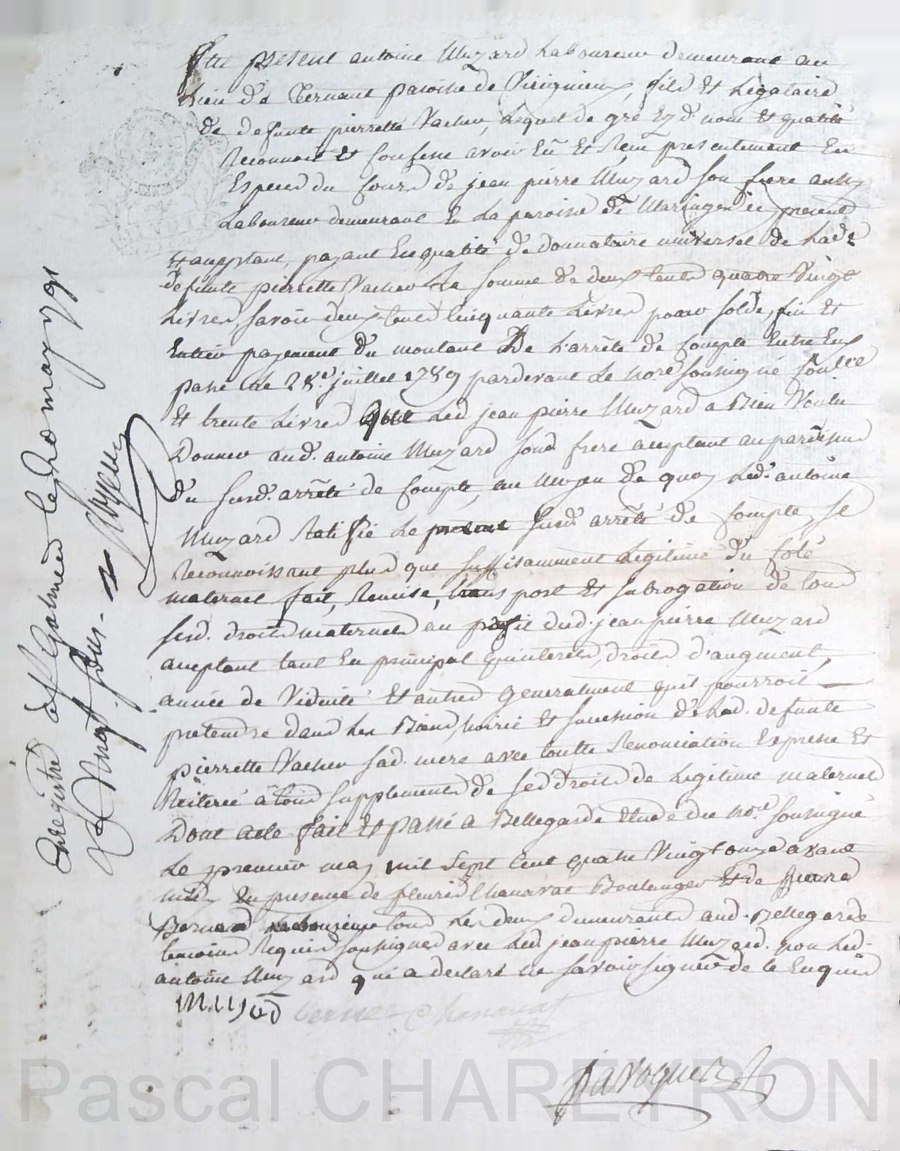 Fut present antoine Muzard Laboureur demeurant au
lieu de Vernant paroisse de Virignieu, fils Et Legataire
de defunte pierrette Vacher, Lequel de gré Esd. nom Et qualité
Reconnoit Et Confesse avoir Eu Et Recu presentement En
Especes du Cours de jean pierre Muzard son frere aussy
Laboureur demeurant En La paroisse de Maringes icy present
Et acceptant, payant En qualité de donnataire universel de Lade
defunte pierrette Vacher La somme de deux Cents quatre Vingt
Livres, savoir deux Cents Cinquante Livres pour solde, fin Et
Entier payement du montant De L'arrêté de Compte Entre Eux
passé le 28e juillet 1789 pardevant Le nore soussigné
Et trente Livres que Led jean pierre Muzard a Bien Voulu
Donner aud. antoine Muzard sond frere acceptant au pardessus
du susd. arrêté de Compte, au Moyen de quoy Led. antoine
Muzard Ratifie Le susd. arrêté de Compte, se
Reconnoissant plus que suffisamment Legitimé du Coté
maternel fait, Remise, trans port et subrogation de tous
sesd. droits maternels au profit dud. jean pierre Muzard
acceptant tant En principal qu'interets, droits d'augment,
année de Viduité Et autres Generalment qu'il pourroit
pretendre dans Les Biens, hoirie Et succession de Lad. defunte
pierrette Vacher sad. mere avec toutte Renonciation Expresse Et
Reiterée à tous supplements de sesd Droits de Legitime maternel
Dont acte fait Et passé a Bellegarde Etude du nore soussigné
Le premier may mil sept Cent quatre Vingt onze avant
midy En presence de fleury Chanavat Boulenger Et de pierre
Bernard Laboureur tous Les deux demeurants aud. Bellegarde
temoins Requis soussignés avec Led jean pierre Muzard. non Led.
antoine Muzard qui a declaré ne savoir signer de ce Enquis
Musard Chanavat
Enregistré à St Galmier le 10 may 1791
Pascal CHARETRON